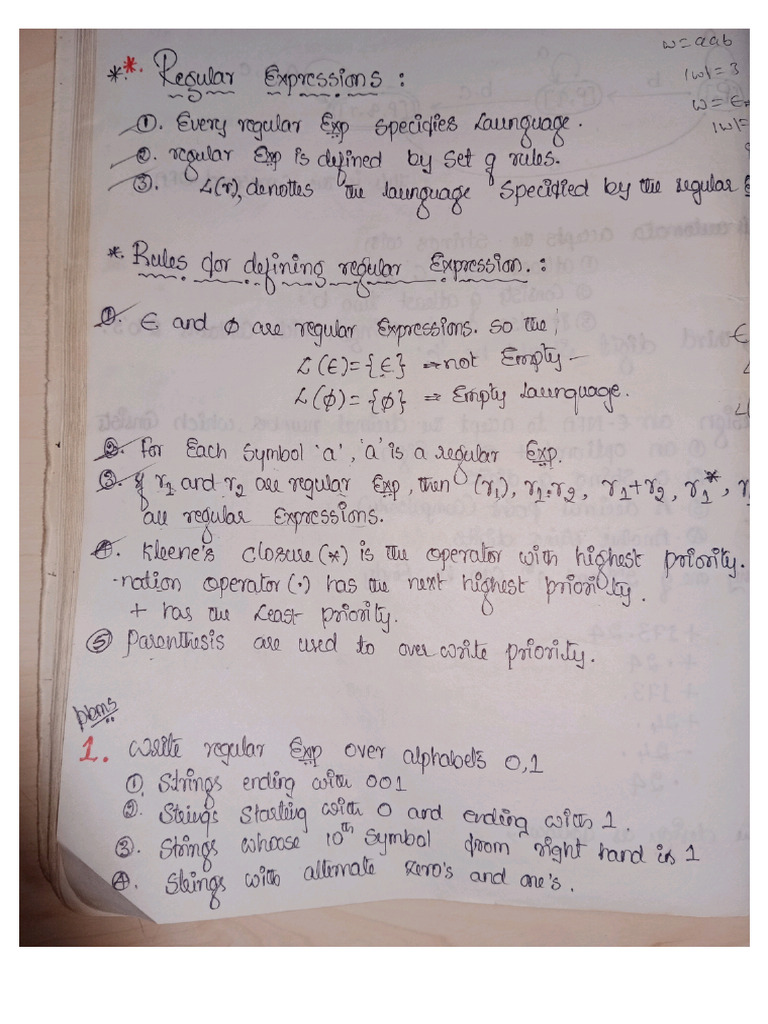 w = aab
|w| = 3
w = ε
|w| =
*.*. Regular Expressions :
①. Every regular Exp specifies Launguage.
②. regular Exp is defined by set of rules.
③. L(r), denottes the launguage specified by the regular E
*. Rules for defining regular Expression. :
①. ε and ϕ are regular Expressions. so the
L(ε) = {ε} ⇒ not Empty
L(ϕ) = {ϕ} ⇒ Empty Launguage.
②. for Each symbol 'a', 'a' is a regular Exp.
③. if r1 and r2 are regular Exp, then (r1), r1.r2, r1+r2, r1*, r
are regular Expressions.
④. kleene's closure (*) is the operator with highest priority.
-nation operator (.) has the next highest priority.
+ has the Least priority.
⑤ Parenthesis are used to over write priority.
pbms
1. write regular Exp over alphabets 0,1
①. Strings ending with 001
②. Strings starting with 0 and ending with 1
③. Strings whoose 10th symbol from right hand is 1
④. Strings with alternate zero's and one's.